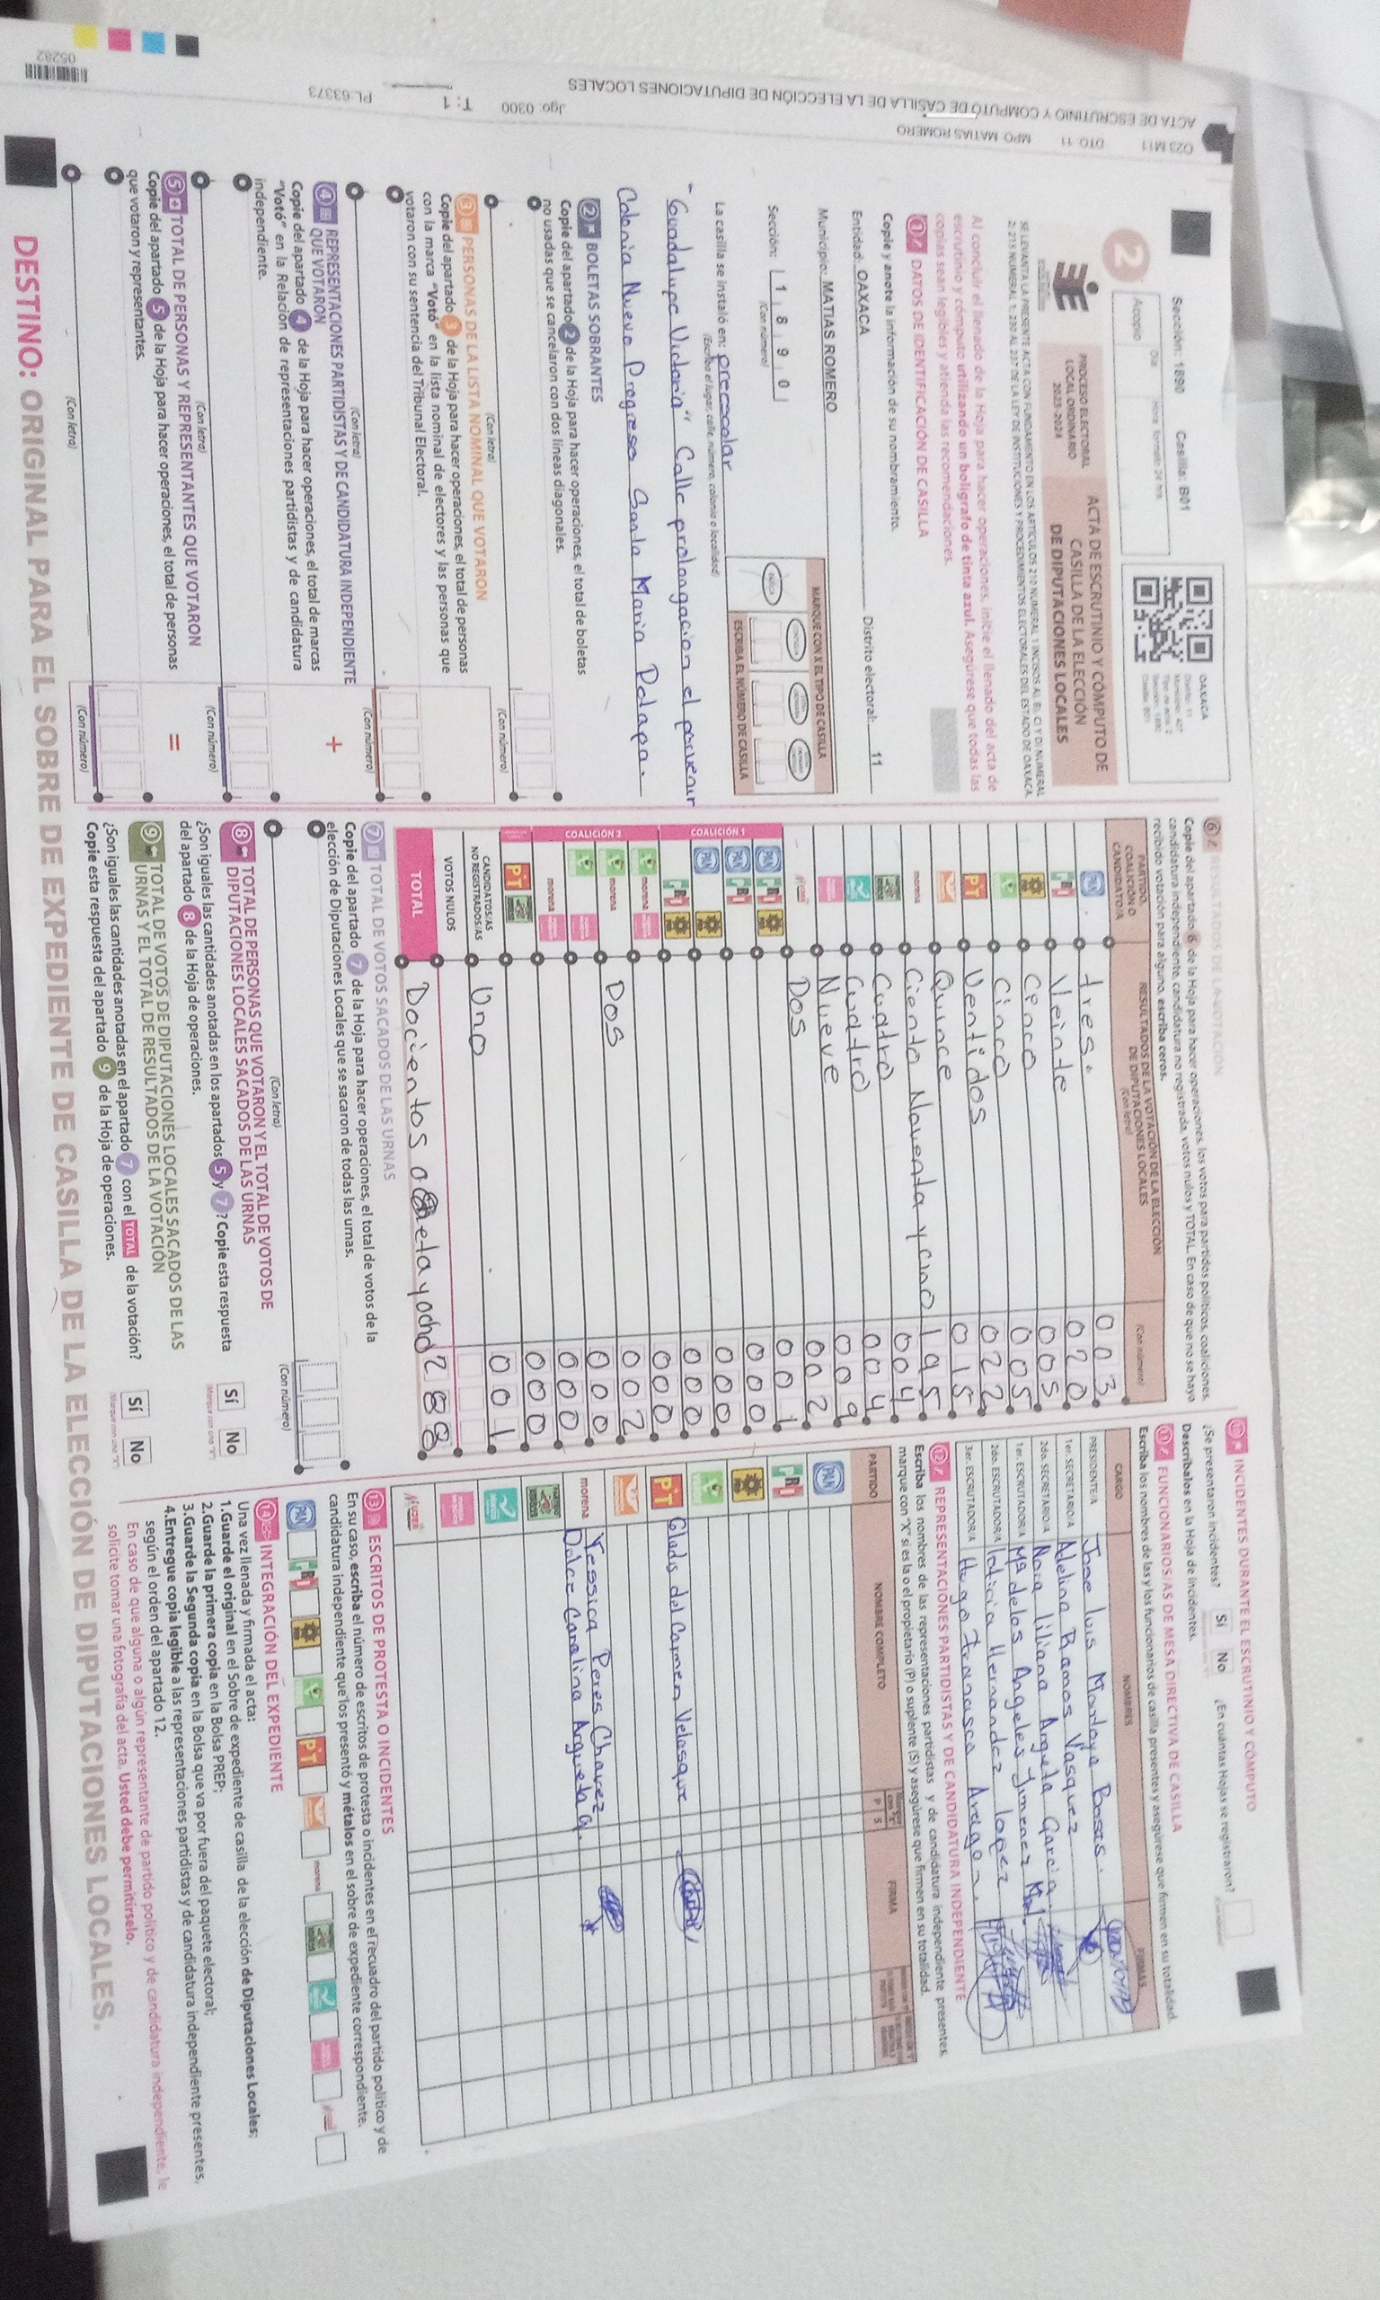 ACTA DE ESCRUTINIO Y CÓMPUTO DE CASILLA DE LA ELECCIÓN DE DIPUTACIONES LOCALES
023 M11
DTO 11
MPO MATIAS ROMERO
Jgo: 0300
T: 1
PL.63373
05282
Sección: 1890 Casilla: B01
2
Acopio
Día
OAXACA
PROCESO ELECTORAL
LOCAL ORDINARIO
2023-2024
ACTA DE ESCRUTINIO Y CÓMPUTO DE
CASILLA DE LA ELECCIÓN
DE DIPUTACIONES LOCALES
Al concluir el llenado de la Hoja para hacer operaciones, inicie el llenado del acta de
escrutinio y cómputo utilizando un bolígrafo de tinta azul. Asegúrese que todas las
copias sean legibles y atienda las recomendaciones.
1 DATOS DE IDENTIFICACIÓN DE CASILLA
Copie y anote la información de su nombramiento.
Entidad: OAXACA Distrito electoral: 11
Municipio: MATIAS ROMERO
Sección: 1 8 9 0
(Con número)
MARQUE CON X EL TIPO DE CASILLA
ESCRIBA EL NÚMERO DE CASILLA
La casilla se instaló en: preescolar
(Escriba el lugar, calle, número, colonia o localidad)
"Guadalupe Victoria" Calle prolongacion el porvenir
Colonia Nuevo Progreso Santa Maria Petapa.
2 BOLETAS SOBRANTES
Copie del apartado 2 de la Hoja para hacer operaciones, el total de boletas
no usadas que se cancelaron con dos líneas diagonales.
(Con letra) (Con número)
3 PERSONAS DE LA LISTA NOMINAL QUE VOTARON
Copie del apartado 3 de la Hoja para hacer operaciones, el total de personas
con la marca "Votó" en la lista nominal de electores y las personas que
votaron con su sentencia del Tribunal Electoral.
(Con letra) (Con número)
4 REPRESENTACIONES PARTIDISTAS Y DE CANDIDATURA INDEPENDIENTE
QUE VOTARON
+
Copie del apartado 4 de la Hoja para hacer operaciones, el total de marcas
"Votó" en la Relación de representaciones partidistas y de candidatura
independiente.
(Con letra) (Con número)
5 TOTAL DE PERSONAS Y REPRESENTANTES QUE VOTARON
=
Copie del apartado 5 de la Hoja para hacer operaciones, el total de personas
que votaron y representantes.
(Con letra) (Con número)
6 RESULTADOS DE LA VOTACIÓN
Copie del apartado 6 de la Hoja para hacer operaciones, los votos para partidos políticos, coaliciones,
candidatura independiente, candidatura no registrada, votos nulos y TOTAL. En caso de que no se haya
recibido votación para alguno, escriba ceros.
PARTIDO,
COALICIÓN O
CANDIDATO/A
RESULTADOS DE LA VOTACIÓN DE LA ELECCIÓN
DE DIPUTACIONES LOCALES
(Con letra)
(Con número)
PAN tres. 003
PRI Veinte 020
Cinco 005
Cinco 005
PT Ventidos 022
Quince 015
morena Ciento Noventa y cinco 195
Cuatro 004
Cuatro 004
Nueve 009
Dos 002
COALICIÓN 1
001
000
000
000
COALICIÓN 2
000
morena Dos 002
000
morena 000
PT 000
CANDIDATOS/AS
NO REGISTRADOS/AS Uno 001
VOTOS NULOS
TOTAL Docientos ochetayocho 288
7 TOTAL DE VOTOS SACADOS DE LAS URNAS
Copie del apartado 7 de la Hoja para hacer operaciones, el total de votos de la
elección de Diputaciones Locales que se sacaron de todas las urnas.
(Con letra) (Con número)
8 TOTAL DE PERSONAS QUE VOTARON Y EL TOTAL DE VOTOS DE
DIPUTACIONES LOCALES SACADOS DE LAS URNAS
¿Son iguales las cantidades anotadas en los apartados 5 y 7? Copie esta respuesta
del apartado 8 de la Hoja de operaciones.
Sí No
9 TOTAL DE VOTOS DE DIPUTACIONES LOCALES SACADOS DE LAS
URNAS Y EL TOTAL DE RESULTADOS DE LA VOTACIÓN
¿Son iguales las cantidades anotadas en el apartado 7 con el TOTAL de la votación?
Copie esta respuesta del apartado 9 de la Hoja de operaciones.
Sí No
10 INCIDENTES DURANTE EL ESCRUTINIO Y CÓMPUTO
¿Se presentaron incidentes? Sí No ¿En cuántas Hojas se registraron?
Descríbalos en la Hoja de Incidentes.
11 FUNCIONARIOS/AS DE MESA DIRECTIVA DE CASILLA
Escriba los nombres de las y los funcionarios de casilla presentes y asegúrese que firmen en su totalidad.
CARGO NOMBRES FIRMAS
PRESIDENTE/A Jose luis Montoya
1er. SECRETARIO/A Adelina Ramos Vasquez
2do. SECRETARIO/A Nora liliana Argeta Garcia
1er. ESCRUTADOR/A Mª delos Angeles Jimenez
2do. ESCRUTADOR/A leticia Hernandez lopez
3er. ESCRUTADOR/A Hugo Francisco
12 REPRESENTACIONES PARTIDISTAS Y DE CANDIDATURA INDEPENDIENTE
Escriba los nombres de las representaciones partidistas y de candidatura independiente presentes,
marque con "X" si es la o el propietario (P) o suplente (S) y asegúrese que firmen en su totalidad.
PARTIDO NOMBRE COMPLETO P S FIRMA
PAN
PRI
PT Gladis del Carmen Velasque
morena Yessica Peres Chavez
Dulce Carolina Argueta G.
13 ESCRITOS DE PROTESTA O INCIDENTES
En su caso, escriba el número de escritos de protesta o incidentes en el recuadro del partido político y de
candidatura independiente que los presentó y métalos en el sobre de expediente correspondiente.
PAN PRI PT morena
14 INTEGRACIÓN DEL EXPEDIENTE
Una vez llenada y firmada el acta:
1.Guarde el original en el Sobre de expediente de casilla de la elección de Diputaciones Locales;
2.Guarde la primera copia en la Bolsa PREP;
3.Guarde la Segunda copia en la Bolsa que va por fuera del paquete electoral;
4.Entregue copia legible a las representaciones partidistas y de candidatura independiente presentes,
según el orden del apartado 12.
En caso de que alguna o algún representante de partido político y de candidatura independiente, le
solicite tomar una fotografía del acta. Usted debe permitírselo.
DESTINO: ORIGINAL PARA EL SOBRE DE EXPEDIENTE DE CASILLA DE LA ELECCIÓN DE DIPUTACIONES LOCALES.